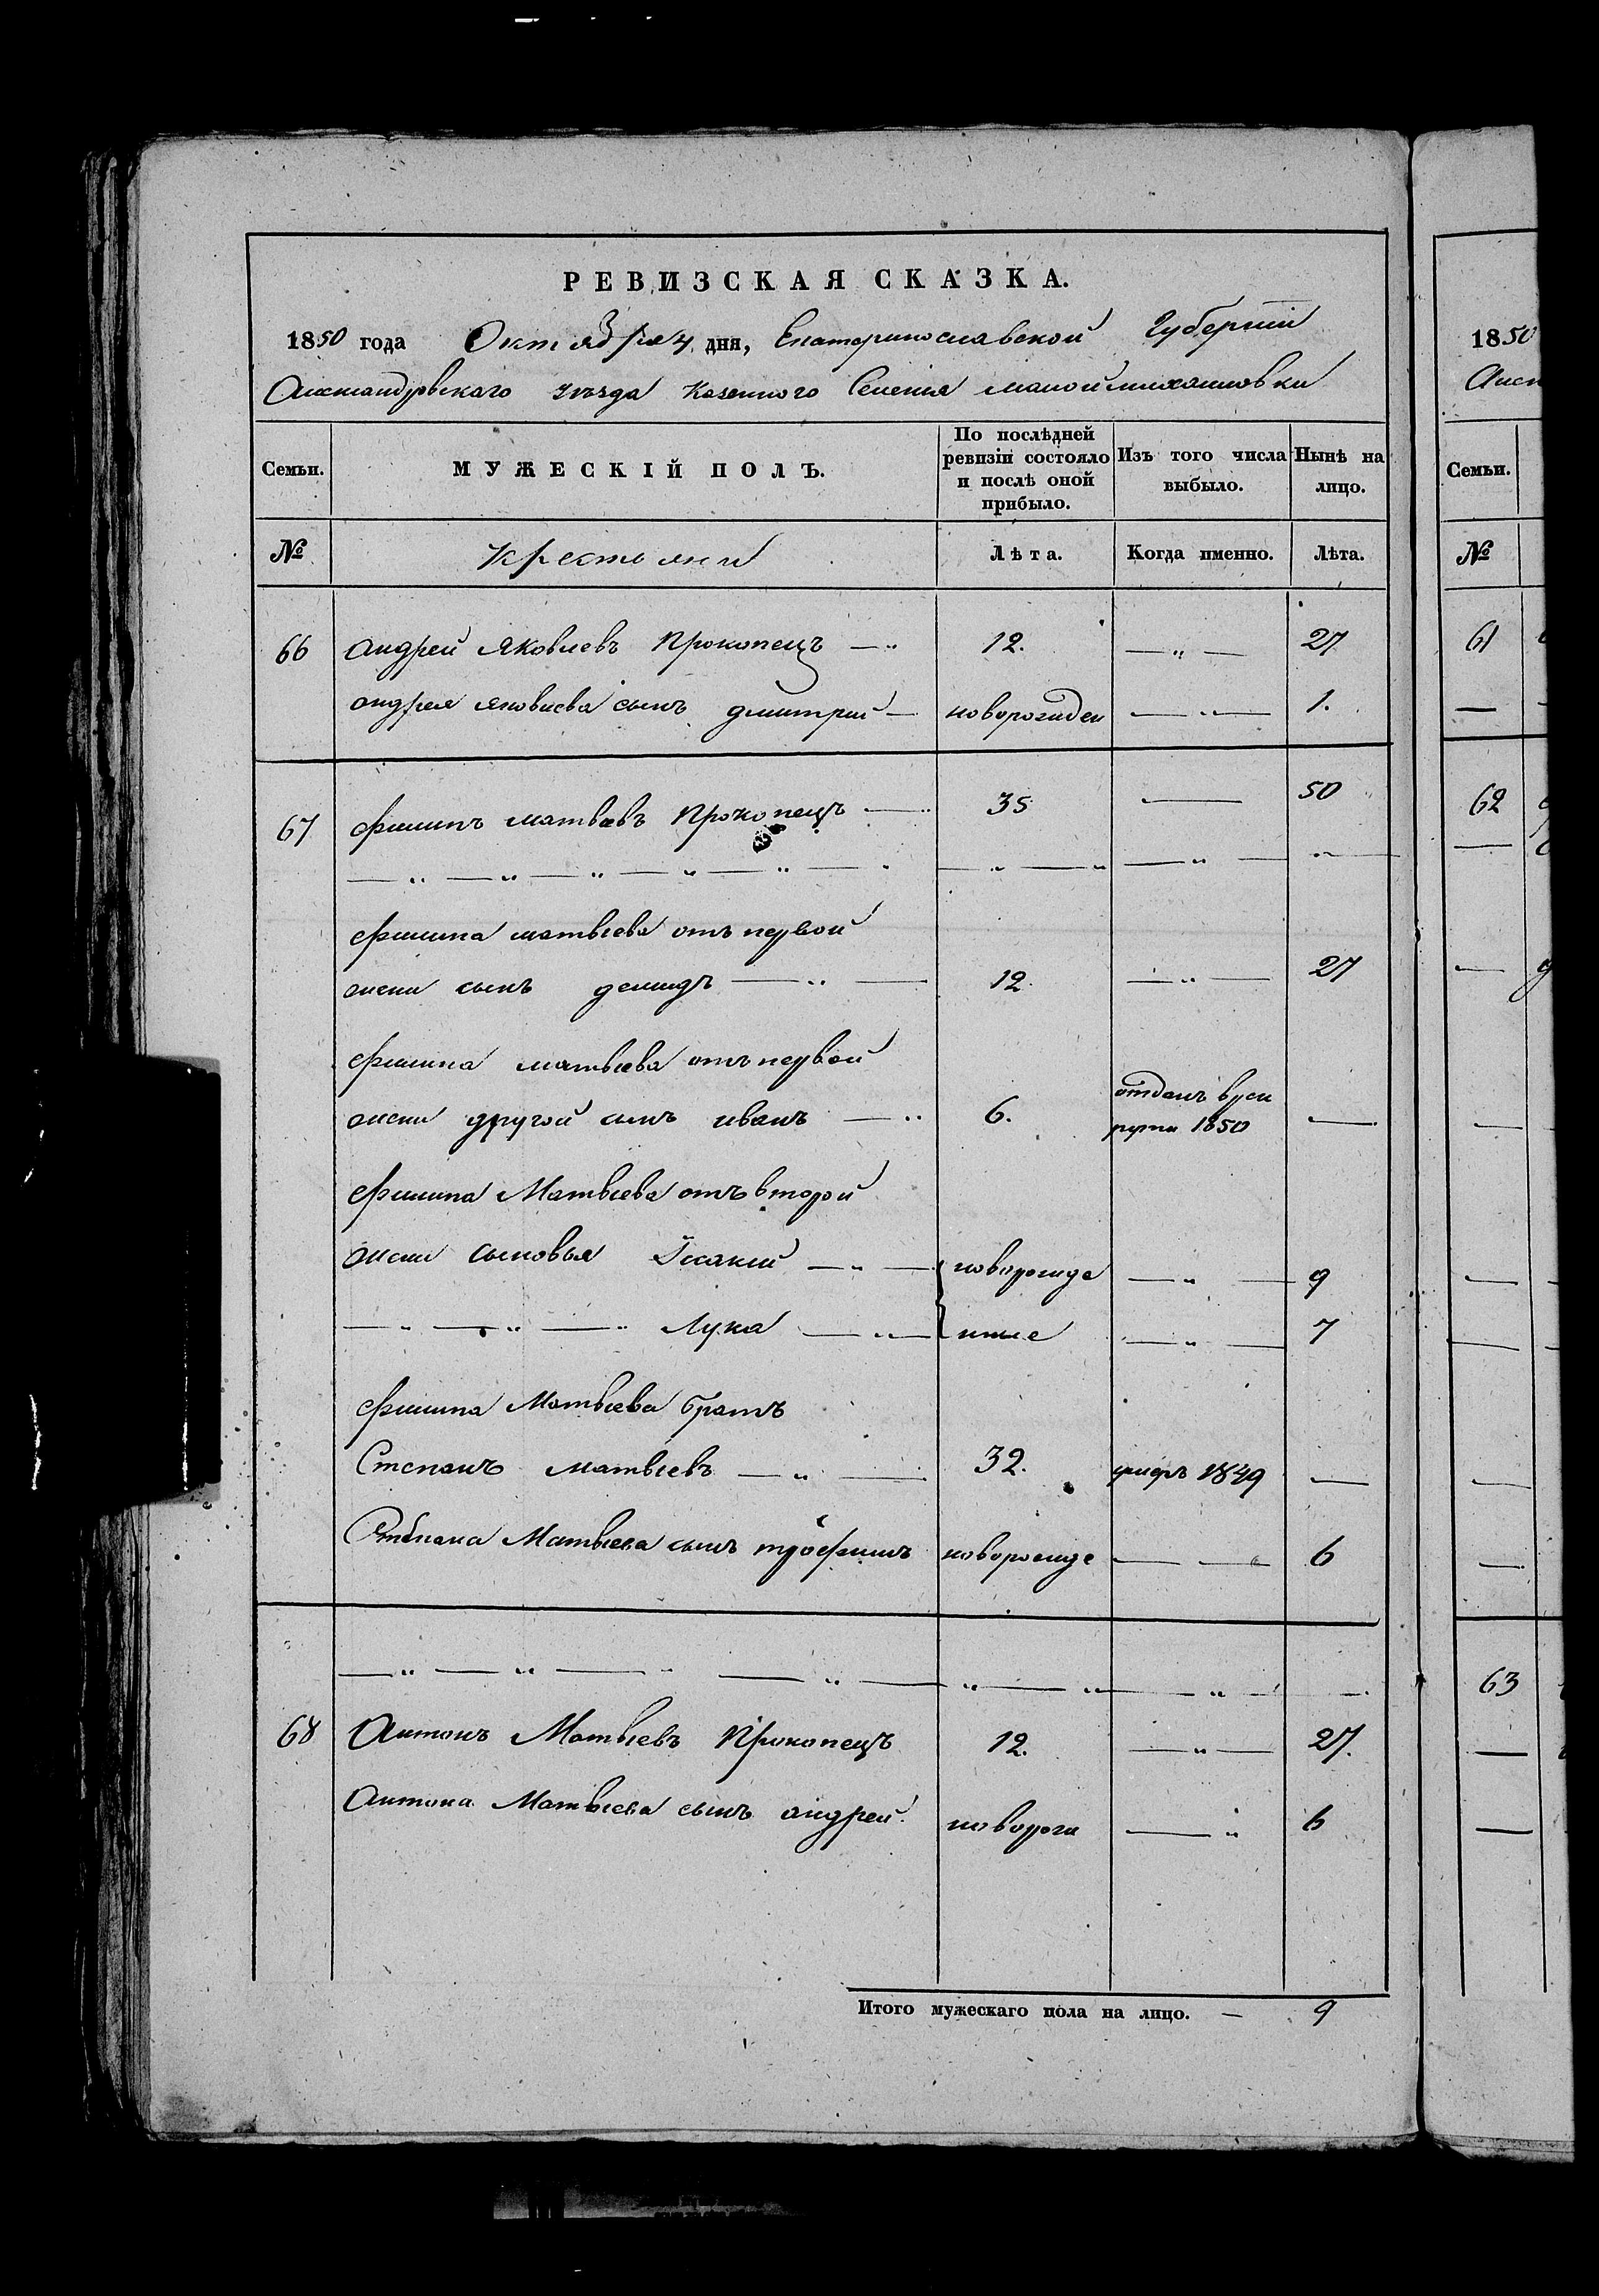 РЕВИЗСКАЯ СКАЗКА.
1850 года Октября 4 дня, Екатеринославской Губернии
Александровского уѣзда Казенного Селения малой михайловки
Семьи.
МУЖЕСКІЙ ПОЛЪ.
По послѣдней ревизіи состояло и послѣ оной прибыло.
Изъ того числа выбыло.
Нынѣ на лицо.
№ Крестьяни Лѣта. Когда именно. Лѣта.
66 андрей Яковлевъ Прокопецъ — " 12. — " — 27
андрея яковлева сынъ дмитрий — новорожден — " — 1.
67 филипъ матвевъ Прокопецъ — " 35 — 50
филипа матвѣева отъ первой
жени сынъ демидъ — " — 12. — " — 27
филипа матвѣева отъ первой
жени другой сынъ иванъ — " 6. отданъ врек
рути 1850 —
филипа Матвѣева отъ второй
жени сыновья Iсакий — " — новорожде — " — 9
— " — " — " Лука — " — ние — " — 7
филипа Матвѣева братъ
Степанъ матвѣевъ — " — 32. умеръ 1849 —
Степана Матвѣева сынъ трофимъ новорожде — — 6
68 Антонъ Матвѣевъ Прокопецъ 12. — " — 27.
Антона Матвѣева сынъ андрей. новорож — " 6
Итого мужескаго пола на лицо. — 9
1850
Семьи.
№
61
62
63